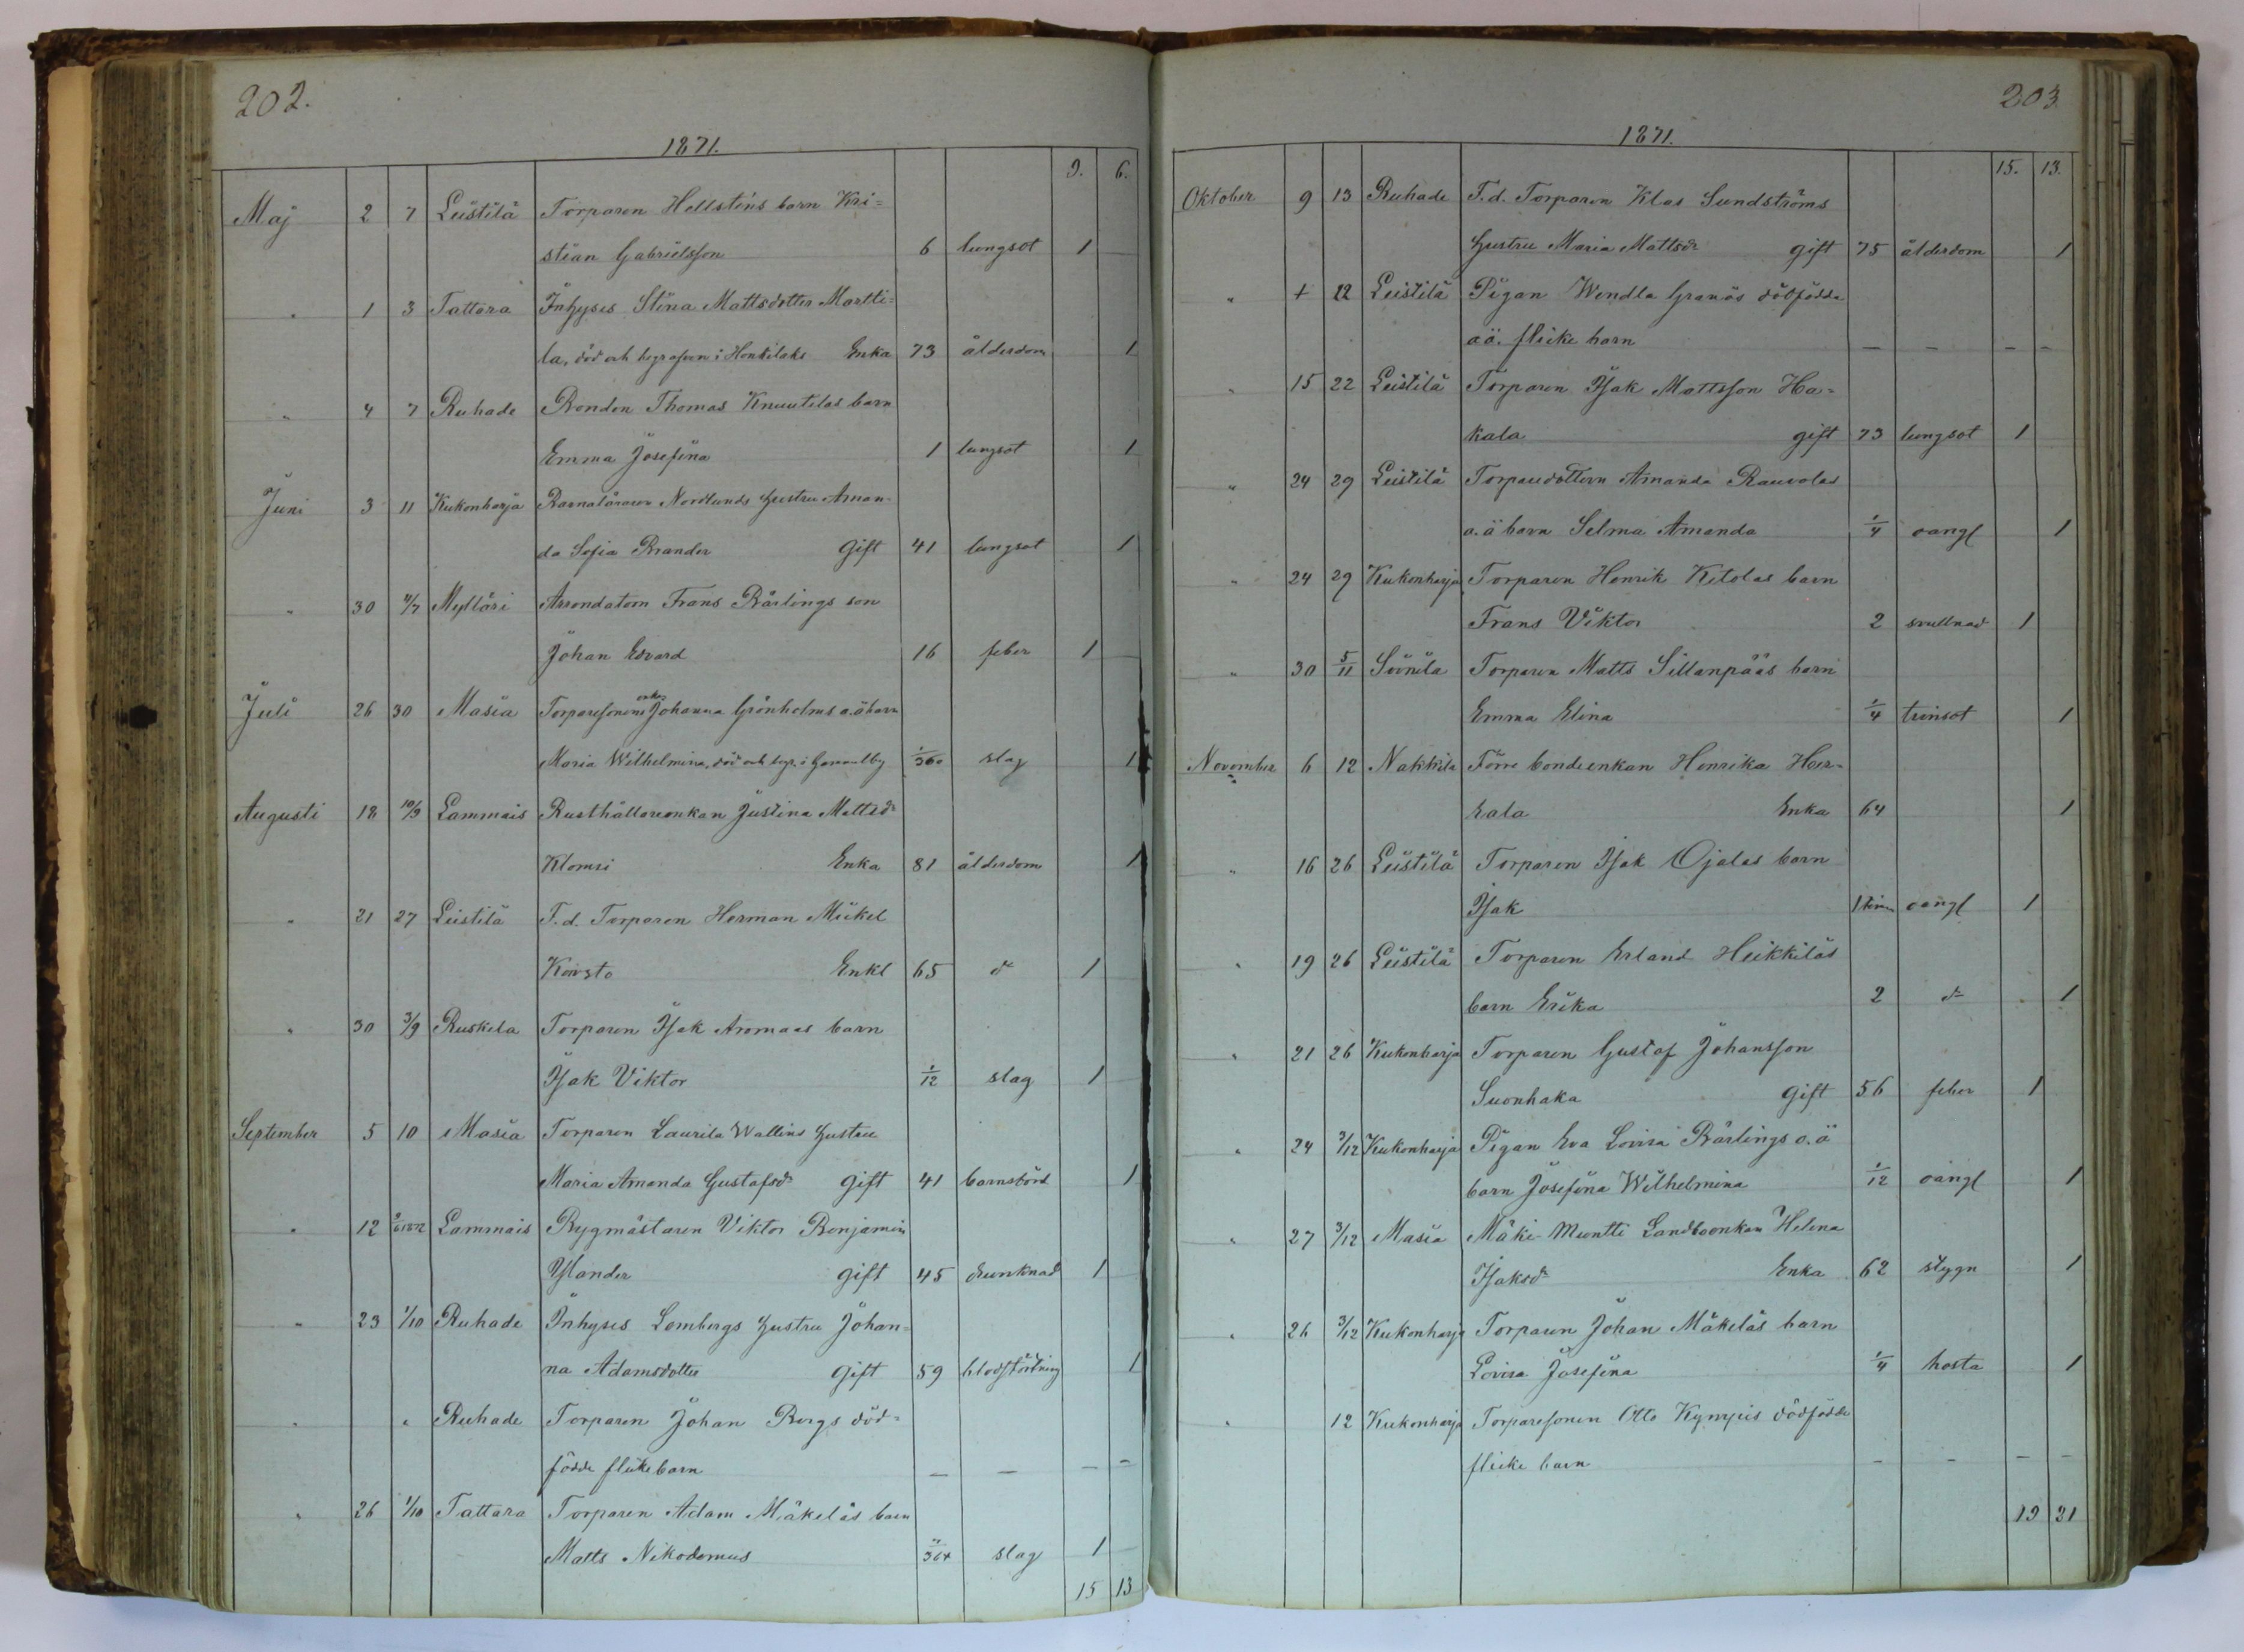 202.
1871.
9. 6.
Maj 2 7 Leistilä Torparen Hellsténs barn Kri=
stian Gabrielsson 6 lungsot 1
" 1 3 Tattara Inhyses Stina Mattsdotter Martti=
la, död och begrafven i Honkilaks Enka 73 ålderdom 1
" 4 7 Ruhade Bonden Thomas Knuutilas barn
Emma Josefina 1 lungsot 1
Juni 3 11 Kukonharja Barnaläraren Nordlunds hustru Aman-
da Sofia Brander Gift 41 lungsot 1
" 30 4/7 Myllari Arrendatorn Frans Bärlings son
Johan Edvard 16 feber 1
Juli 26 30 Masia Torparesonens enka Johanna Grönholms o.ä barn
Maria Wilhelmina, död och begr. i Gammelby 1/360 slag 1
Augusti 18 10/9 Lammais Rusthållareenkan Justina Mattsdr
Klomsi Enka 81 ålderdom 1
" 21 27 Leistilä F.d. Torparen Herman Mickel
Koivsto Enkl 65 do 1
" 30 3/9 Ruskila Torparen Isak Aromaas barn
Isak Viktor 1/12 slag 1
September 5 10 Masia Torparen Laurila Wallins hustru
Maria Amanda Gustafsdr gift 41 barnsbörd 1
" 12 1872 Lammais Bygmästaren Viktor Benjamin
Ylander gift 45 drunknad 1
" 23 1/10 Ruhade Inhyses Lembergs hustru Johan=
na Adamsdotter Gift 59 blodstörtning 1
" " Ruhade Torparen Johan Bergs död=
födde flickebarn — — — —
" 26 1/10 Tattara Torparen Adam Mäkeläs barn
Matts Nikodemus 364 slag 1
15 13
203
1871.
15. 13.
Oktober 9 13 Ruhade F.d. Torparen Klas Sundströms
hustru Maria Mattsdr gift 75 ålderdom 1
" + 22 Leistilä Pigan Wendla Granös dödfödda
oä. flicke barn — — — —
" 15 22 Leistilä Torparen Isak Mattsson Ha=
kala gift 73 lungsot 1
" 24 29 Leistilä Torpardottern Amanda Rauvolas
o.ä barn Selma Amanda 1/4 oangl 1
" 24 29 Kukonharja Torparen Henrik Ketolas barn
Frans Viktor 2 svullnad 1
" 30 5/11 Soinila Torparen Matts Sillanpääs barn
Emma Elina 1/4 trinsot 1
November 6 12 Nakkila Förre bondeenkan Henrika Her-
rala Enka 64 1
" 16 26 Leistilä Torparen Isak Ojalas barn
Isak 1 tim oangl 1
" 19 26 Leistilä Torparen Erland Heikkiläs
barn Erika 2 do 1
" 21 26 Kukonharja Torparen Gustaf Johansson
Suonhaka Gift 56 feber 1
" 24 3/12 Kukonharja Pigan Eva Lovisa Bärlings o.ä
barn Josefina Wilhelmina 1/12 oangl 1
" 27 3/12 Masia Mäki-Muntti Landboenkan Helena
Isaksdr Enka 62 stygn 1
" 26 3/12 Kukonharja Torparen Johan Mäkeläs barn
Lovisa Josefina 1/4 hosta 1
" 12 Kukonharja Torparesonen Otto Kympis dödfödde
flicke barn — — — —
19 21